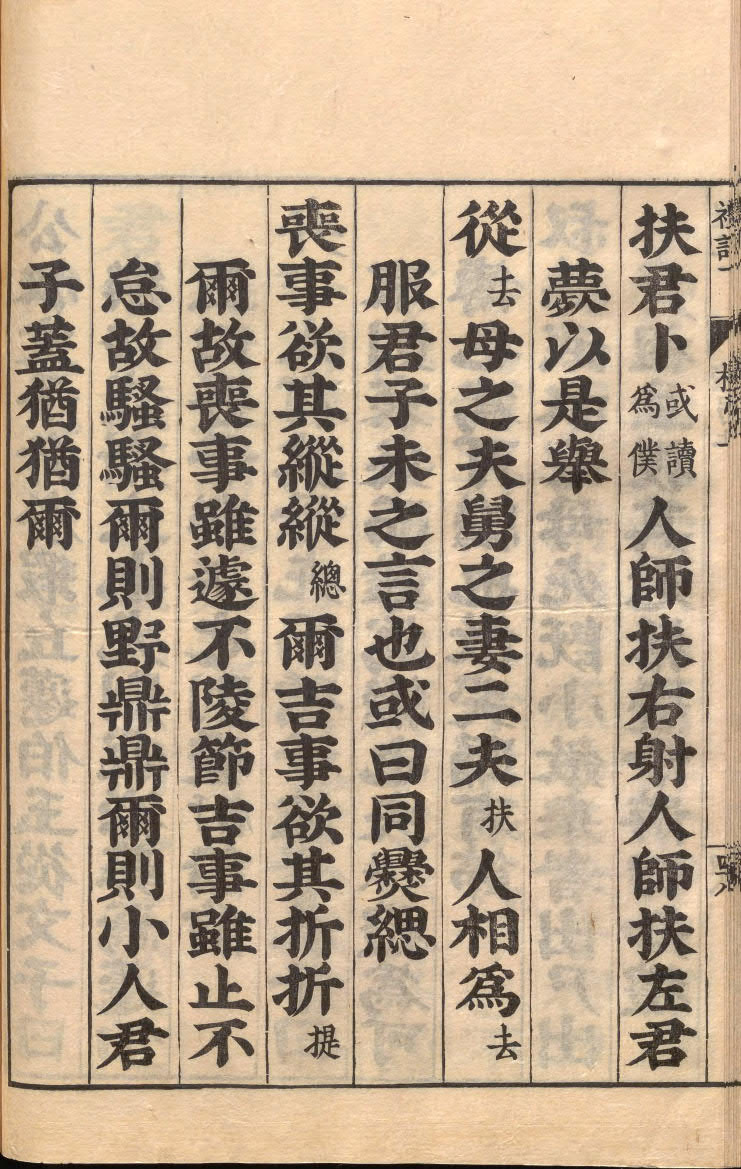 禮記一
檀弓上
扶君卜或讀為僕人師扶右射人師扶左君
薨以是舉
從去母之夫舅之妻二夫扶人相爲去
服君子未之言也或曰同爨緦
喪事欲其縱縱總爾吉事欲其折折提
爾故喪事雖遽不陵節吉事雖止不
怠故騷騷爾則野鼎鼎爾則小人君
子蓋猶猶爾